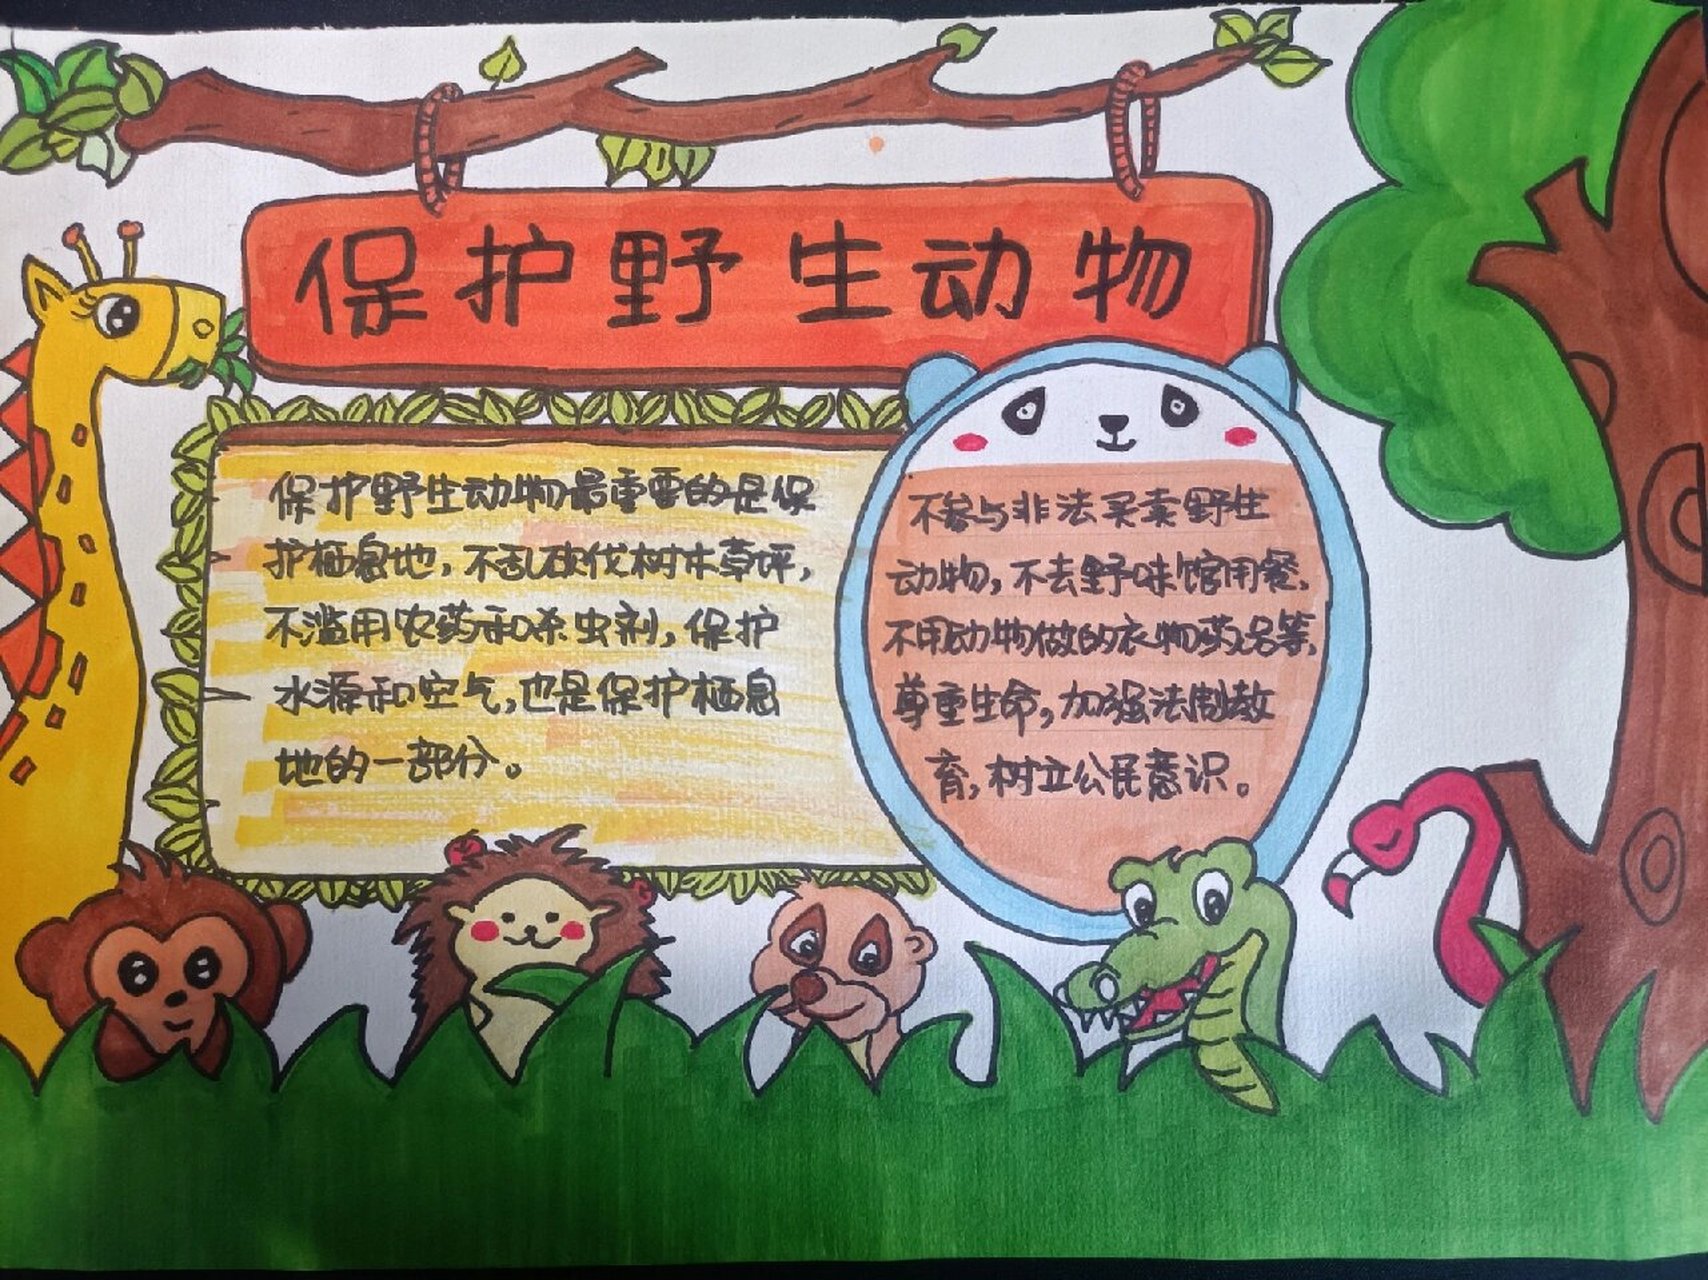 保护野生动物
保护野生动物最重要的是保
护栖息地,不乱砍伐树木草坪,
不滥用农药和杀虫剂,保护
水源和空气,也是保护栖息
地的一部分。
不参与非法买卖野生
动物,不去野味馆用餐,
不用动物做的衣物药品等,
尊重生命,加强法制教
育,树立公民意识。